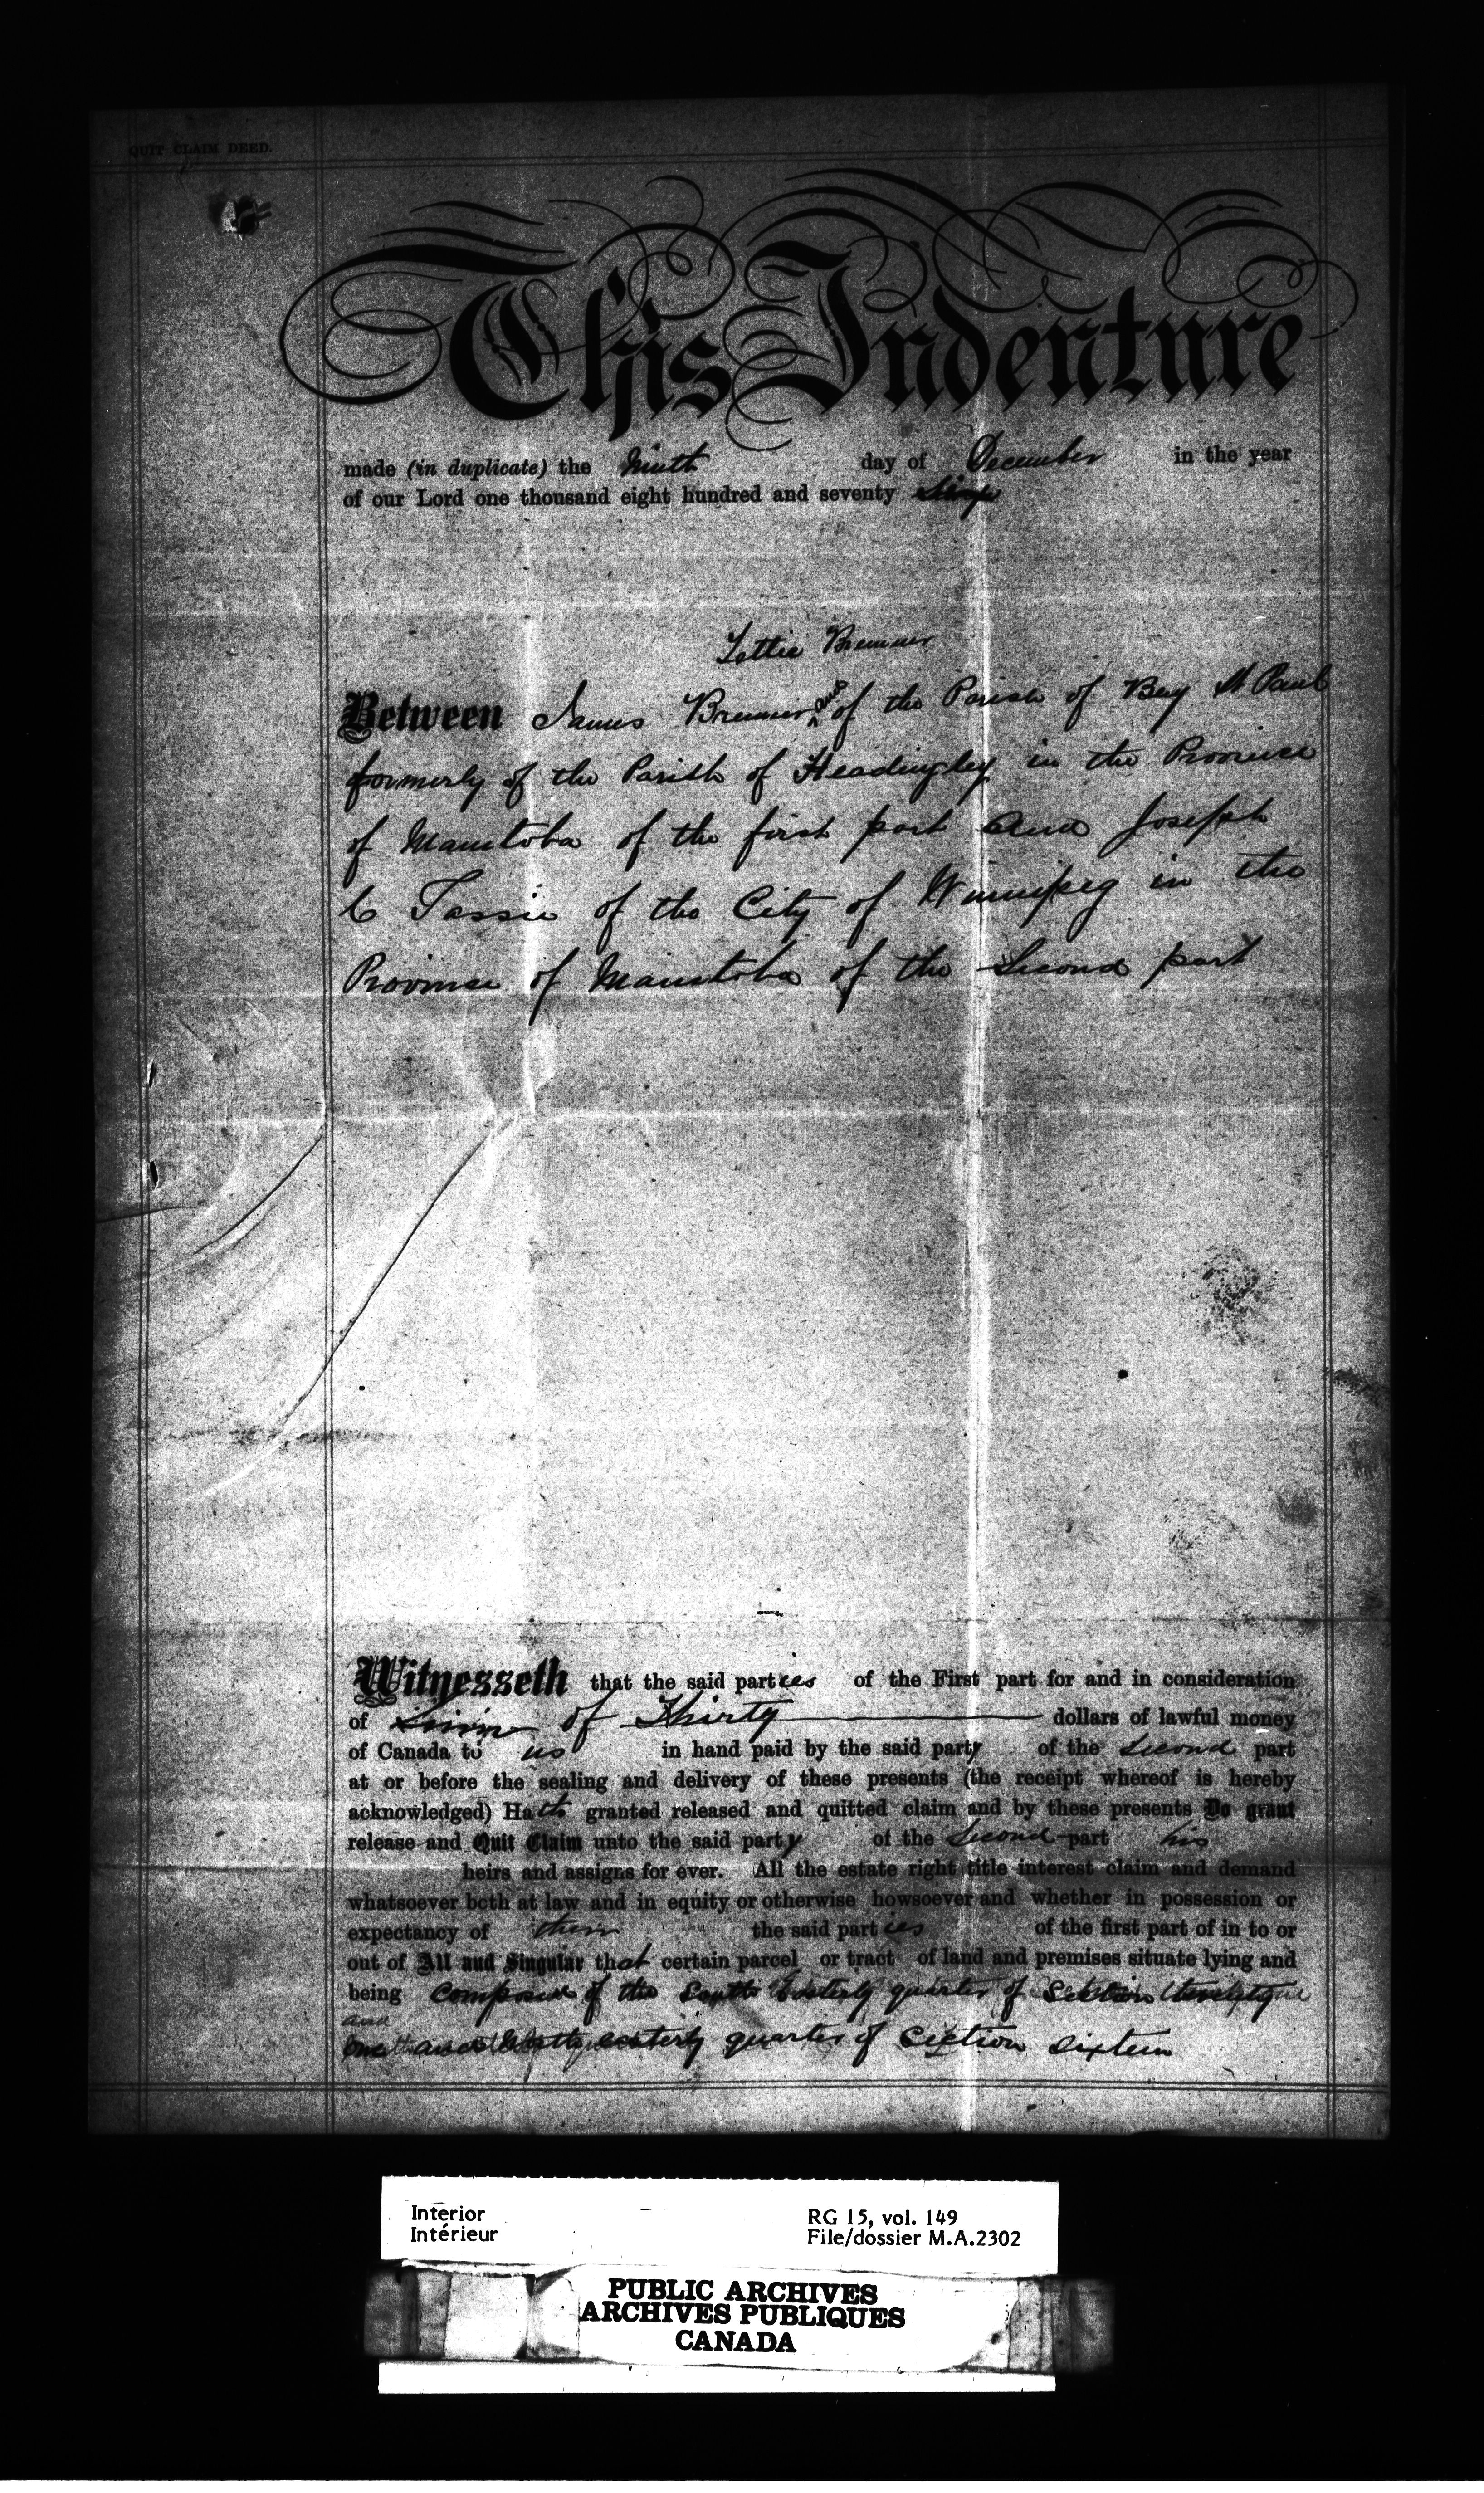 QUIT CLAIM DEED.
This Indenture
made (in duplicate) the Ninth day of December in the year
of our Lord one thousand eight hundred and seventy
Lettie Bremner
Between James Bremner and of the Parish of Bay St Paul
formerly of the Parish of Headingley in the Province
of Manitoba of the first part and Joseph
C Tassie of the City of Winnipeg in the
Province of Manitoba of the Second part
Witnesseth that the said parties of the First part for and in consideration
of of Thirty dollars of lawful money
of Canada to us in hand paid by the said party of the Second part
at or before the sealing and delivery of these presents (the receipt whereof is hereby
acknowledged) Hath granted released and quitted claim and by these presents Do grant
release and Quit Claim unto the said party of the Second part his
heirs and assigns for ever. All the estate right title interest claim and demand
whatsoever both at law and in equity or otherwise howsoever and whether in possession or
expectancy of them the said parties of the first part of in to or
out of All and Singular that certain parcel or tract of land and premises situate lying and
being Composed of the South Easterly quarter of Section
and
quarter of Section Sixteen
Interior
Intérieur
RG 15, vol. 149
File/dossier M.A.2302
PUBLIC ARCHIVES
ARCHIVES PUBLIQUES
CANADA